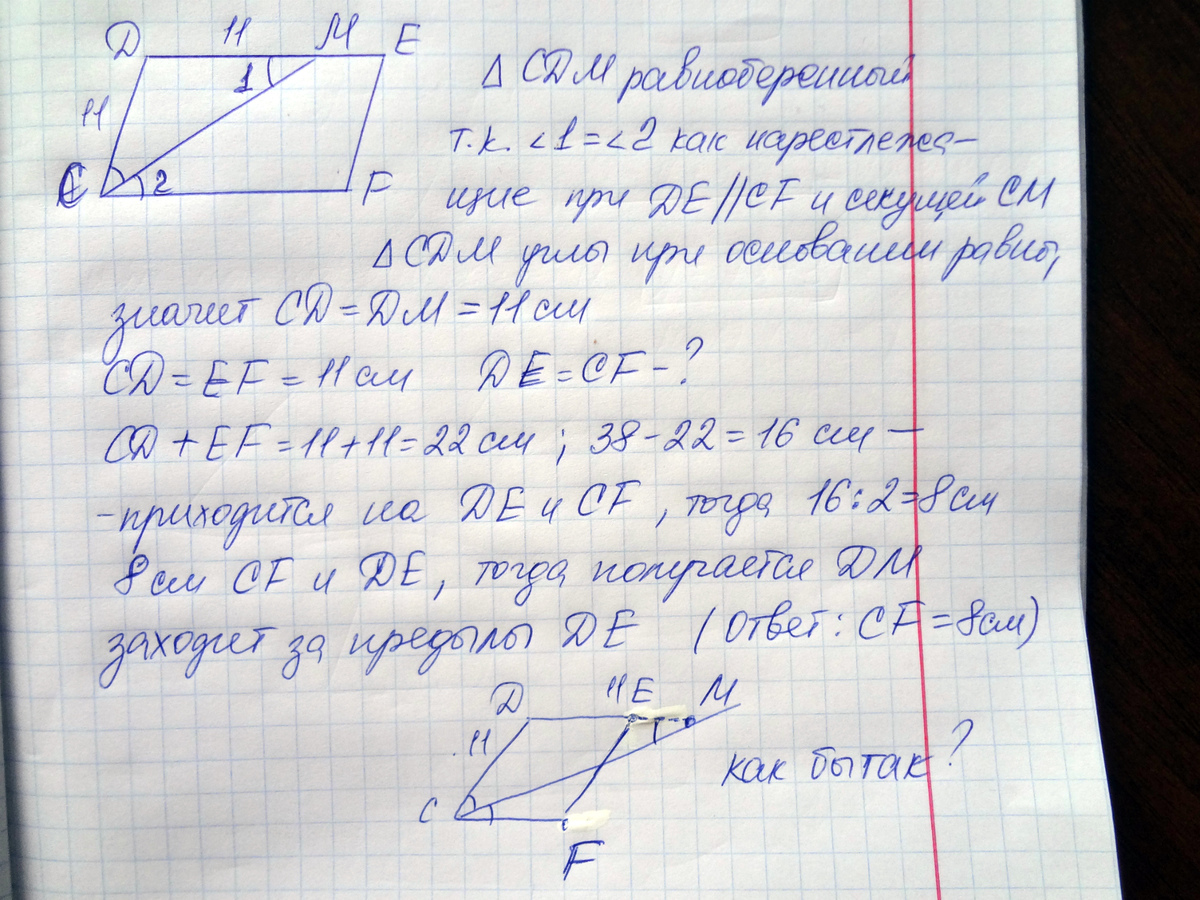 D 11 M E
1
11
C 2 F
Δ CDM равнобедренный
т.к. <1=<2 как накрестлежа-
щие при DE//CF и секущей CM
Δ CDM углы при основании равны,
значит CD=DM=11см
CD=EF=11см DE=CF-?
CD+EF=11+11=22см; 38-22=16 см —
-приходится на DE и CF, тогда 16:2=8см
8см CF и DE, тогда получается DM
заходит за предылы DE (Ответ: CF=8см)
D 11 E M
11
как бы так?
C
F